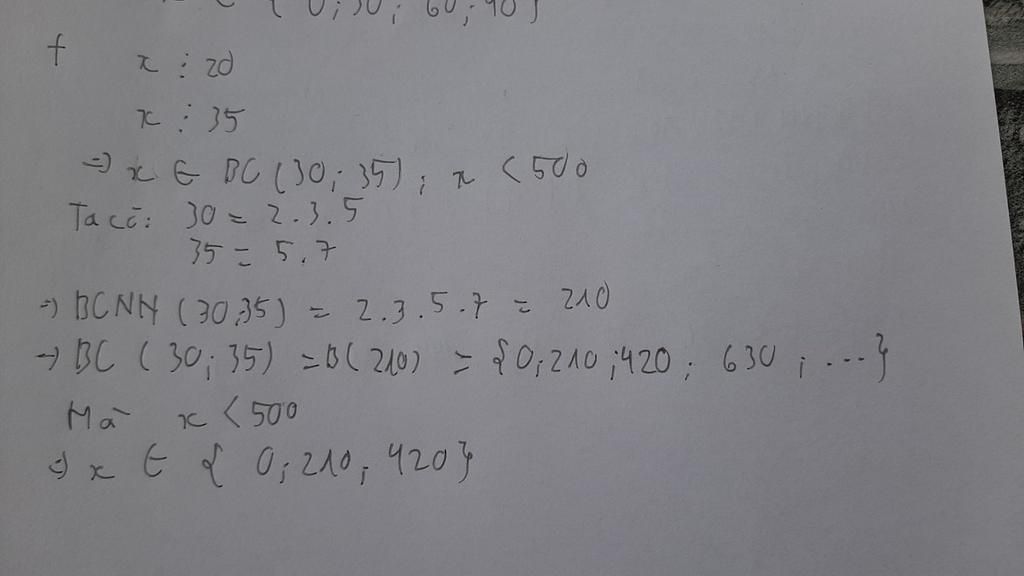 { 0; 30; 60; 90}
f x ⋮ 20
x ⋮ 35
=> x ∈ BC (30; 35); x < 500
Ta có: 30 = 2.3.5
35 = 5.7
=> BCNN (30;35) = 2.3.5.7 = 210
=> BC (30; 35) = B(210) = {0; 210; 420; 630; ...}
Mà x < 500
=> x ∈ { 0; 210; 420}